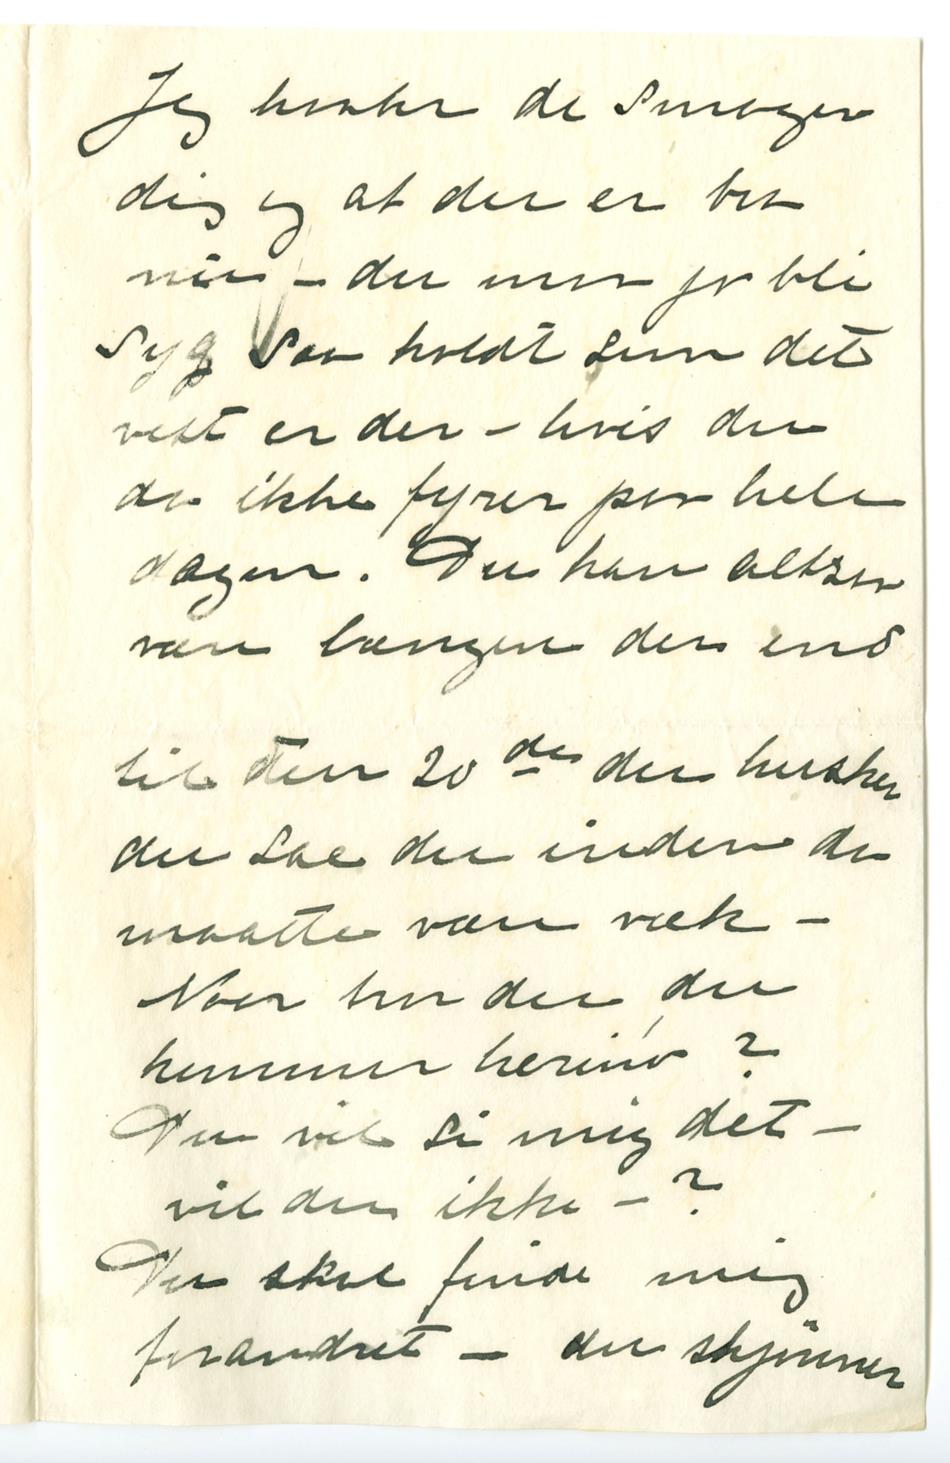 Jeg haaber de smager
dig og at der er bra
nu – du maa jo bli
syg saa koldt som det
vest er der – hvis du
da ikke fyrer paa hele
dagen. Du kan altsaa
være længer der end
til den 20de du husker
du sae du inden da
maatte være væk –
Naar tror du du
kommer herind?
Du vil si mig det –
vil du ikke – ?
Du skal finde mig
forandret – du skjønner